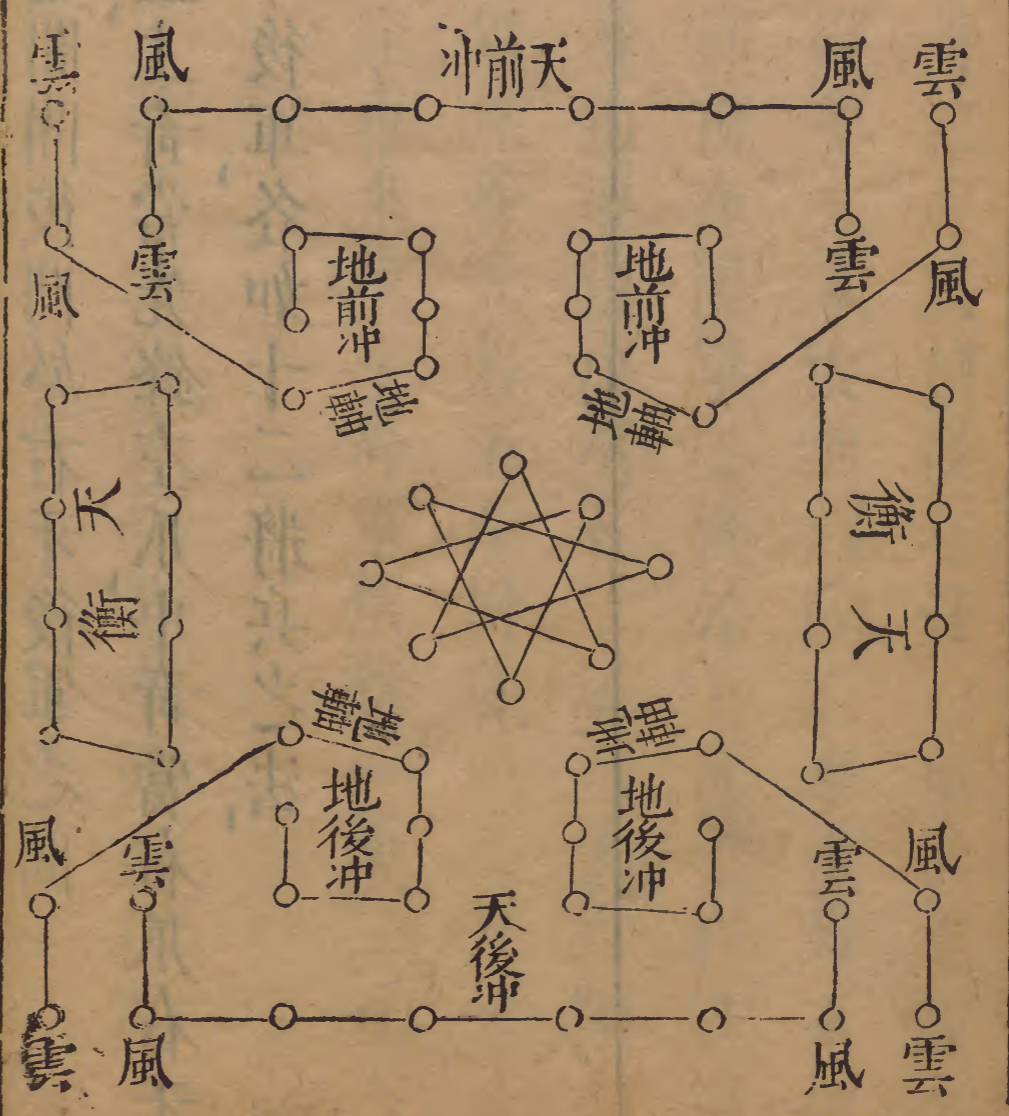 雲
風
天前冲
風
雲
風
雲
地前冲
地前冲
雲
風
地軸
地軸
天衡
天衡
地軸
地軸
風
雲
地後冲
地後冲
雲
風
天後冲
雲
風
風
雲